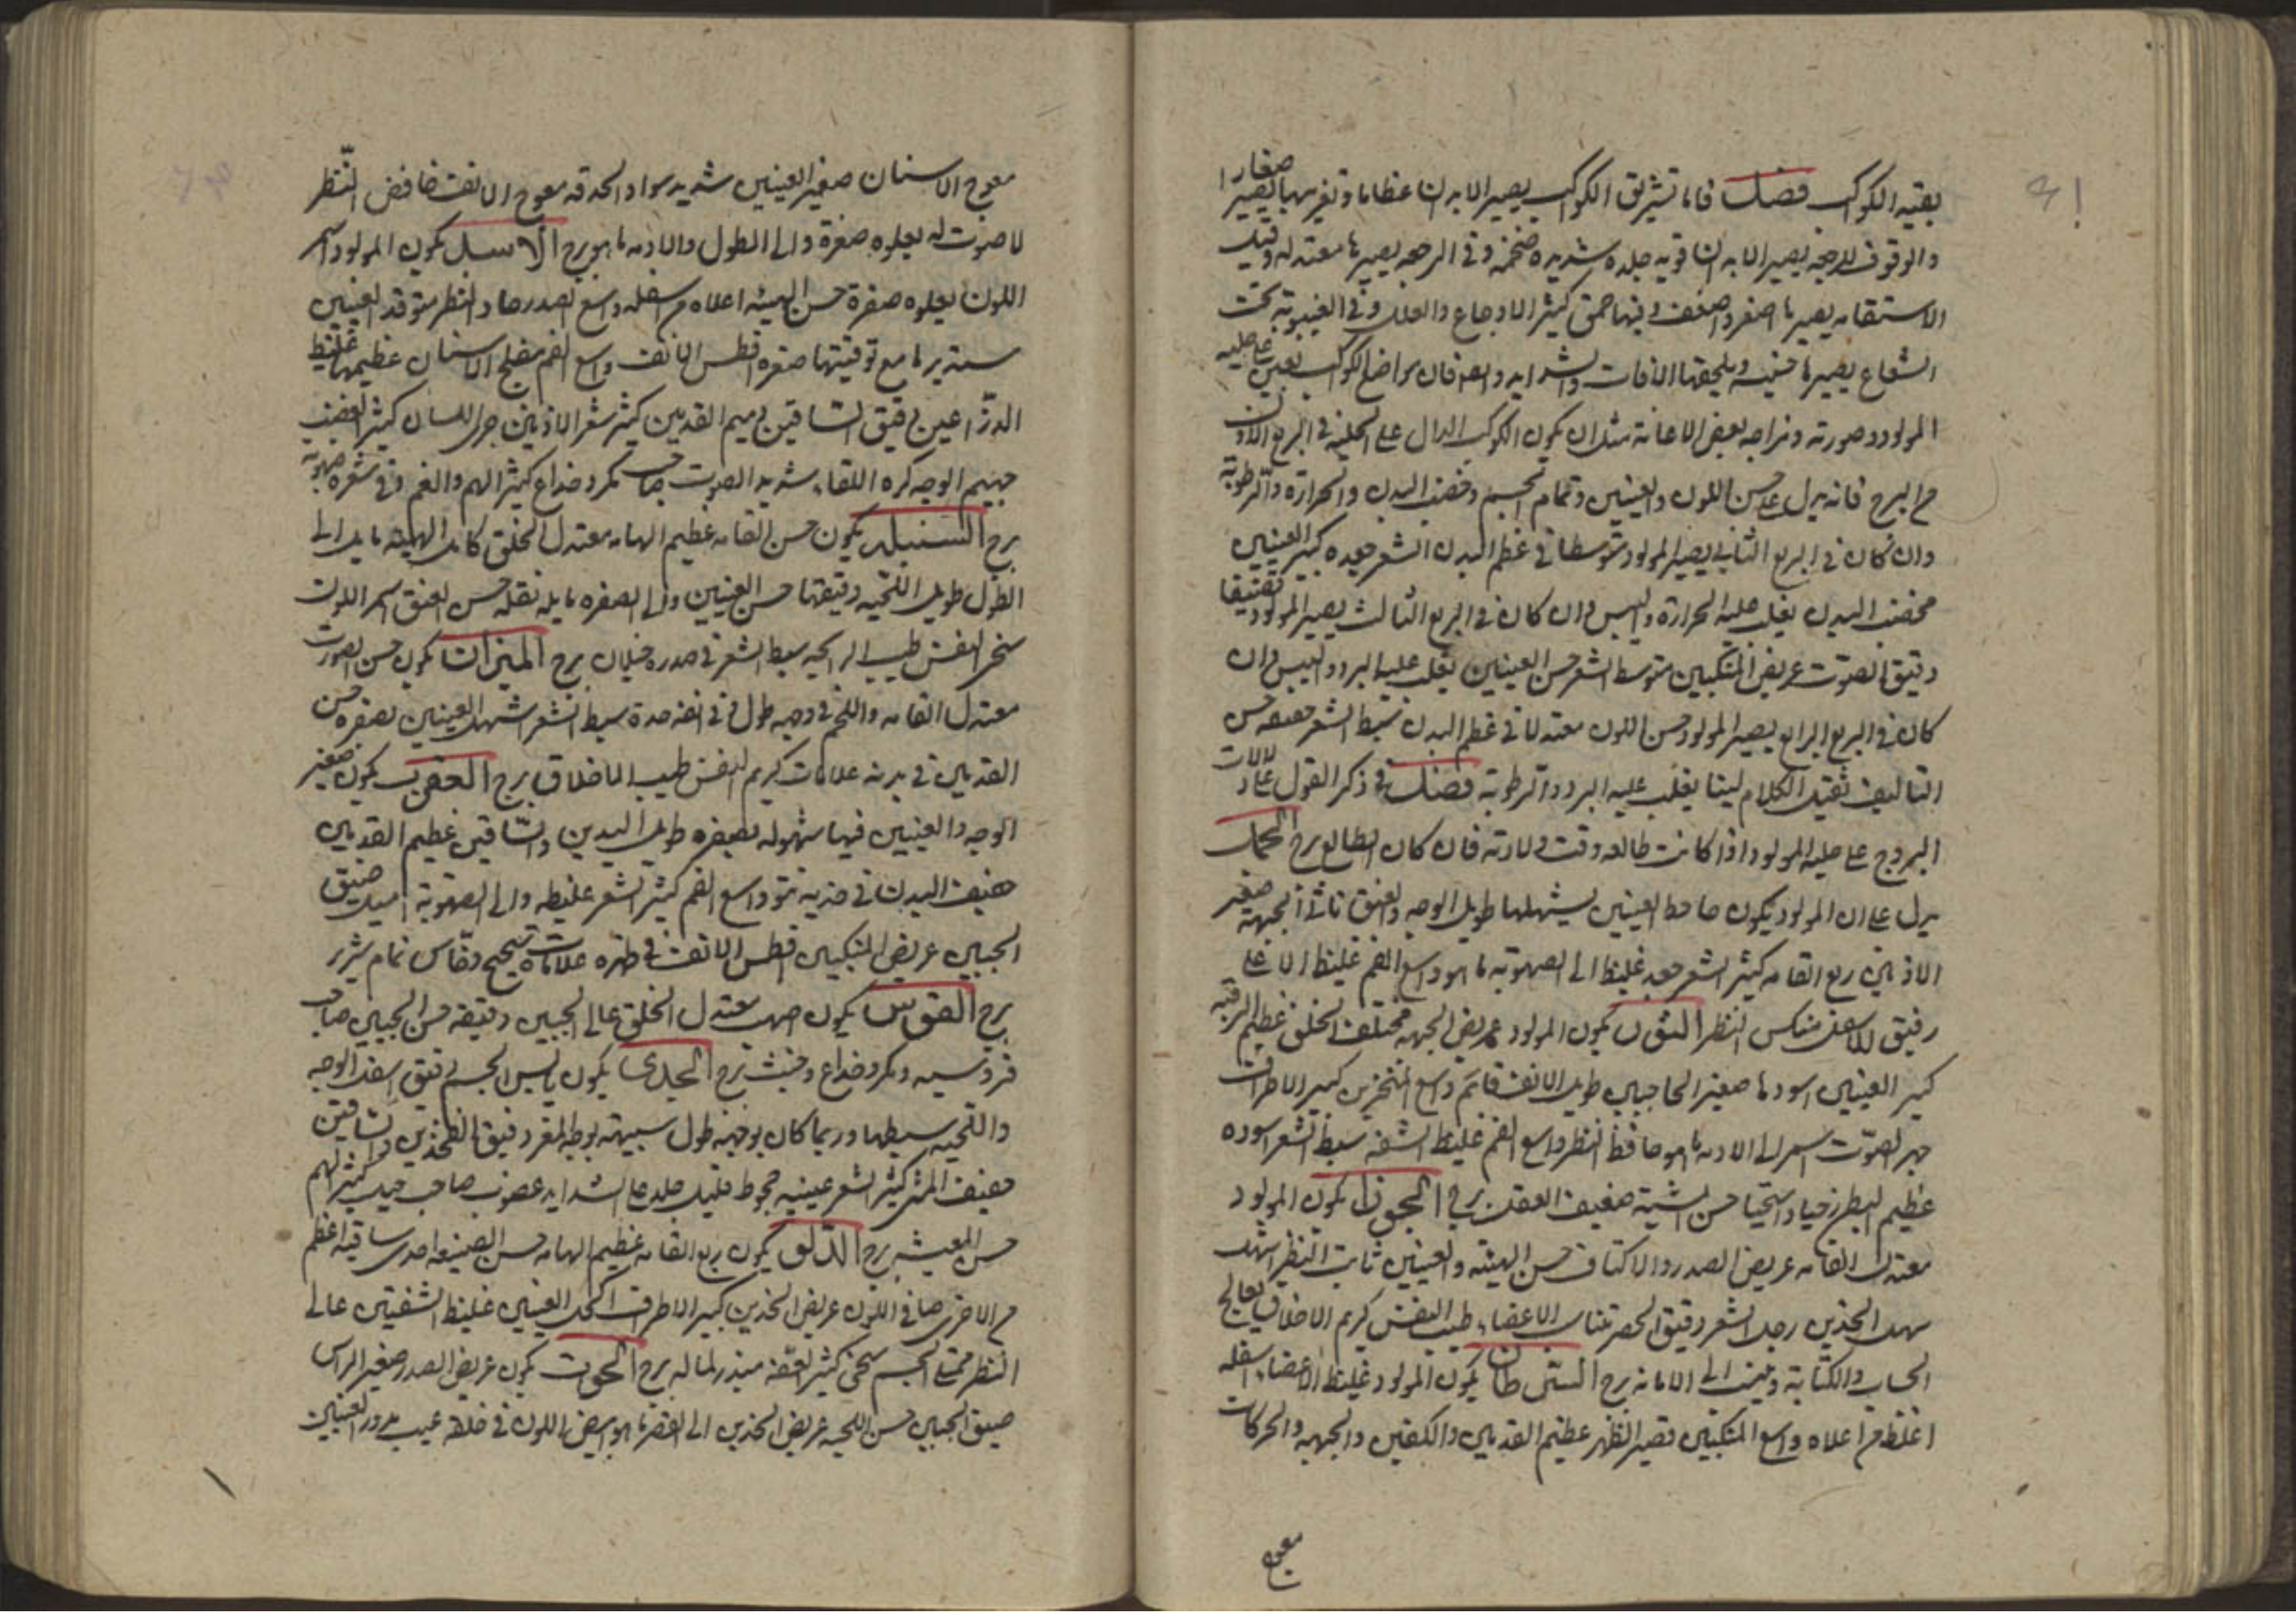 بقيه الكواكب فصل فاما تشريق الكواكب يصير الابدان عظاما وتغريبها يصير صغارا
والوقوف للرجعه يصير الابدان قويه جلده شديده ضخمه وفى الرجعه يصيرها معتدله وقبل
الاستقامه يصيرها اصغر واضعف وفيها حمق كثير الاوجاع والعلل وفى الغيبوبة تحت
الشعاع يصيرها خفيفه ويلحقها الافات والشدايد وايضا فان مواضع الكواكب تعين على حليه
المولود وصورته ومزاجه بعض الاعانة مثل ان يكون الكوكب الدال على الحليه فى الربع الاول
من البرج فانه يدل على حسن اللون والعينين وتمام الجسم وخصب البدن والحرارة والرطوبة
وان كان فى الربع الثانى يصير المولود متوسطا فى عظم البدن الشعر جعده كبير العينين
مخصب البدن يغلب عليه الحرارة واليبس وان كان فى الربع الثالث يصير المولود قضيفا
دقيق الصوت عريض المنكبين متوسط الشعر حسن العينين يغلب عليه البرد واليبس وان
كان فى الربع الرابع يصير المولود حسن اللون معتدلا فى عظم البدن سبط الشعر ضعيفه حسن
التاليف ثقيل الكلام لينا يغلب عليه البرد والرطوبة فصل فى ذكر القول على دلالات
البروج على حليه المولود اذا كانت طالعه وقت ولادته فان كان الطالع برج الحمل
يدل على ان المولود يكون جاحظ العينين يشهلها طويل الوجه والعنق ناتئ الجبهة صغير
الاذنين ربع القامه كثير الشعر جعد غليظ الى الصهوبه ما هو واسع الفم غليظ الاعلى
رقيق الاسفل منكس النظر الثور يكون المولود عريض الجبهه مختلف الخلق غظيم الرقبه
كبير العينين اسودها صغير الحاجبين طويل الانف قايم واسع المنخرين كبير الاطراف
جهر الصوت اسمر الى الادمه ما هو حافظ النظر واسع الفم غليظ الشفه سبط الشعر اسوده
عظيم البطن ذو حيا واستحيا حسن المشية ضعيف العقل برج الجوزا يكون المولود
معتدل القامه عريض الصدر والاكتاف حسن الهيئه والعينين ثابت النظر اشهل
سهل الخدين رجل الشعر دقيق الخصر متناسب الاعضاء طيب النفس كريم الاخلاق يعالج
الحساب والكتابة وينسب الى الامانه برج السرطان يكون المولود غليظ الاعضاء اسفله
اغلظ من اعلاه واسع المنكبين قصير الظهر عظيم القدمين والكفين والجبهه والحركات
معوج
معوج الاسنان صغير العينين شديد سواد الحدقه معوج الانف خافض النظر
لا صوت له يعلوه صفرة والى الطول والادمه ما هو برج الاسد يكون المولود اسمر
اللون يعلوه صفرة حسن الهيئه اعلاه من اسفله واسع الصدر حاد النظر متوقد العينين
مستديرها مع توقيتها صفره افطس الانف واسع الفم مفلج الاسنان عظيمها غليظ
الذراعين دقيق الساقين دميم القدمين كثير شعر الاذنين جرى اللسان كثير الغضب
جهيم الوجه كره اللقاء شديد الصوت صاحب مكر وخداع كثير الهم والغم وفى شعره صهوبة
برج السنبله يكون حسن القامه عظيم الهامه معتدل الخلق كامل الهيئه مايل الى
الطول طويل اللحيه دقيقها حسن العينين والى الصفره مايله نقله حسن العنق اسمر اللون
سخى النفس طيب الرايحه سبط الشعر فى صدره خيلان برج الميزان يكون حسن الصورت
معتدل القامه واللحم فى وجهه طول فى انفه حدة سبط الشعر اشهل العينين بصفره حسن
القدمين فى بدنه علامات كريم النفس طيب الاخلاق برج العقرب يكون صغير
الوجه والعينين فيها شهوله بصفره طويل اليدين والساقين عظيم القدمين
خفيف البدن فى خديه نتو واسع الفم كثير الشعر غليظه والى الصهوبة اميل ضيق
الجبين عريض المنكبين افطس الانف فى ظهره علامات قبيح دقاس نمام شرير
برج القوس يكون اصهب معتدل الخلق عالى الجبين دقيقه حسن الجبين صاحب
فروسيه ومكر وخداع وخبث برج الجدى يكون يابس الجسم دقيق اسفل الوجه
واللحيه سبطها وربما كان بوجهه طول سبيهته بوجه المعز دقيق الفخذين والساقين
ضعيف المشى كثير الشعر عينيه جحوظ قليل جلد على الشدايد غضوب صاحب حيل كثير الهم
حسن المعيشه برج الدلو يكون ربع القامه عظيم الهامه حسن الصنيعه احدى ساقيه اعظم
من الاخرى صافى اللون عريض الخدين كبير الاطراف اكحل العينين غليظ الشفتين عالى
النظر ممتلى الجسم سخى كثير العفه مبذر لماله برج الحوت يكون عريض الصدر صغير الراس
ضيق الجبين حسن اللحيه عريض الخدين الى القصر ما هو ابيض اللون فى خلقه عيب مدور العينين